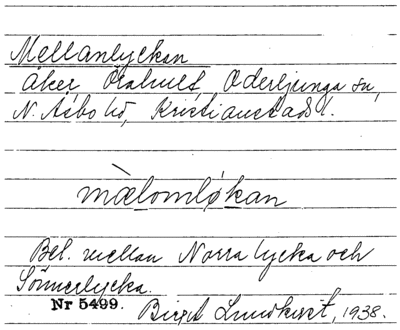 Mellanlyckan
åker Örahult, Oderljunga sn,
N. Åsbo hd, Kristianstads l.
mælomløkan
Bel. mellan Norra lycka och
Sönnerlycka.
Nr 5499. Birgit Lundkvist, 1938.